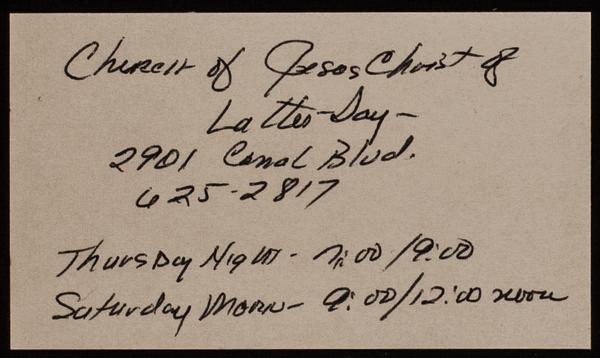 Church of Jesos Christ of
Latter-Day-
2901 Canal Blvd.
625-2817
Thursday Night - 7:00/9:00
Saturday Morn - 9:00/12:00 noon